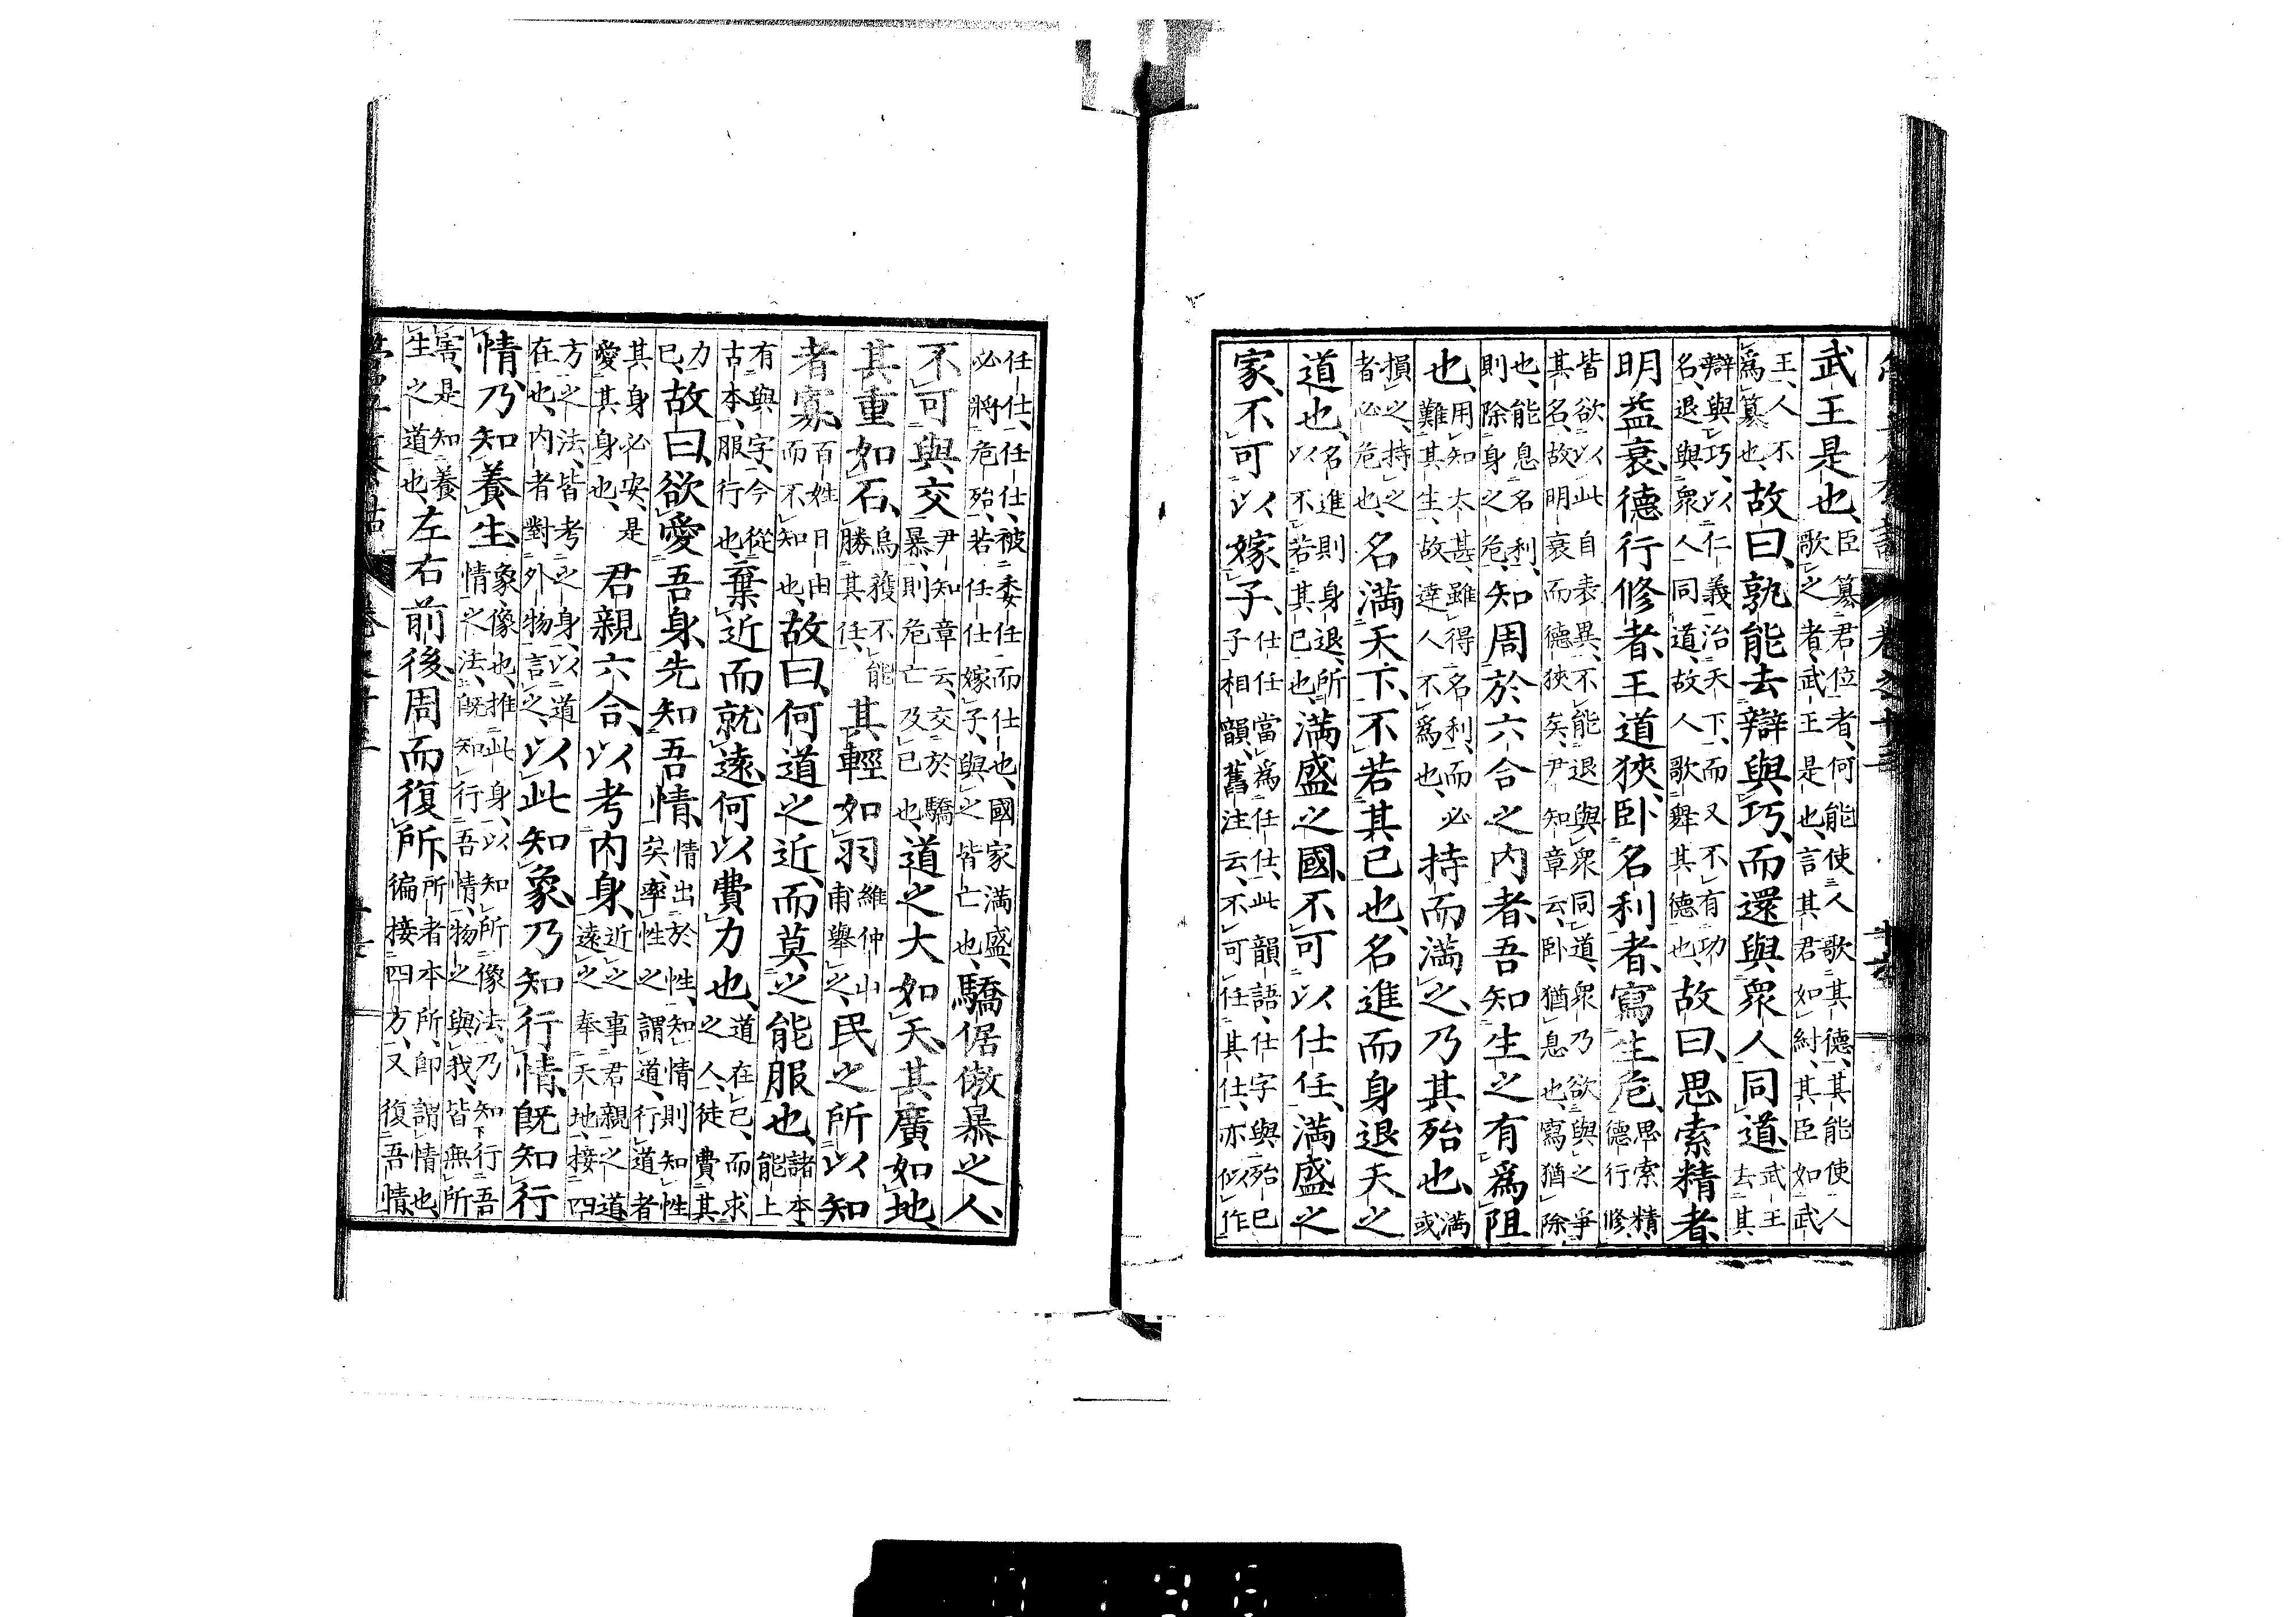 武王是也、臣篡君位者、何能使人歌其德、其能使人
歌之者、武王是也、言其君如紂、其臣如武
王、人不
爲篡也、故曰、孰能去辯與巧、而還與衆人同道、武王
去其
辯與巧、以仁義治天下、而又不有功
名、退與衆人同道、故人歌舞其德也、故曰、思索精者、
明益衰、德行修者、王道狹、卧名利者、寫生危、思索精、
德行修、
皆欲以此自表異、不能退與衆同道、衆乃欲與之爭
其名、故明衰而德狹矣、尹知章云、卧猶息也、寫猶除
也、能息名利、
則除身之危、知周於六合之内者、吾知生之有爲阻
也、用知太甚、雖得名利、而必
難其生、故達人不爲也、持而滿之、乃其殆也、滿
或
損之、持之
者必危也、名滿天下、不若其已也、名進而身退、天之
道也、名進則身退、所
以不若其已也、滿盛之國、不可以仕任、滿盛之
家、不可以嫁子、仕任當爲任仕、此韻語、仕字與殆已
子相韻、舊注云、不可任其仕、亦似作
任仕、任仕、被委任而仕也、國家滿盛、
必將危殆、若任仕嫁子、與之皆亡也、驕倨傲暴之人、
不可與交尹知章云、交於驕
暴、則危亡及己也、道之大如天、其廣如地、
其重如石、烏獲不能
勝其任、其輕如羽維仲山
甫舉之、民之所以知
者寡、百姓日由
而不知也、故曰、何道之近、而莫之能服也、諸本、
能上
有與字、今從
古本、服行也、棄近而就遠、何以費力也、道在己、而求
之人、徒費其
力
已、故曰、欲愛吾身、先知吾情、情出於性、知情則知性
矣、率性之謂道、行道者
其身必安、是
愛其身也、君親六合、以考内身、近之事君親之道、
遠之奉天地、接四
方之法、皆考之身、以道
在也、内者對外物言之、以此知象、乃知行情、既知行
情、乃知養生、象像也、推此身、以知所像法、乃知行吾
情之法、既知行吾情、物之與我、皆無所
害、是知養
生之道也、左右前後、周而復所、所者本所、即謂情也、
徧接四方、又復吾情、